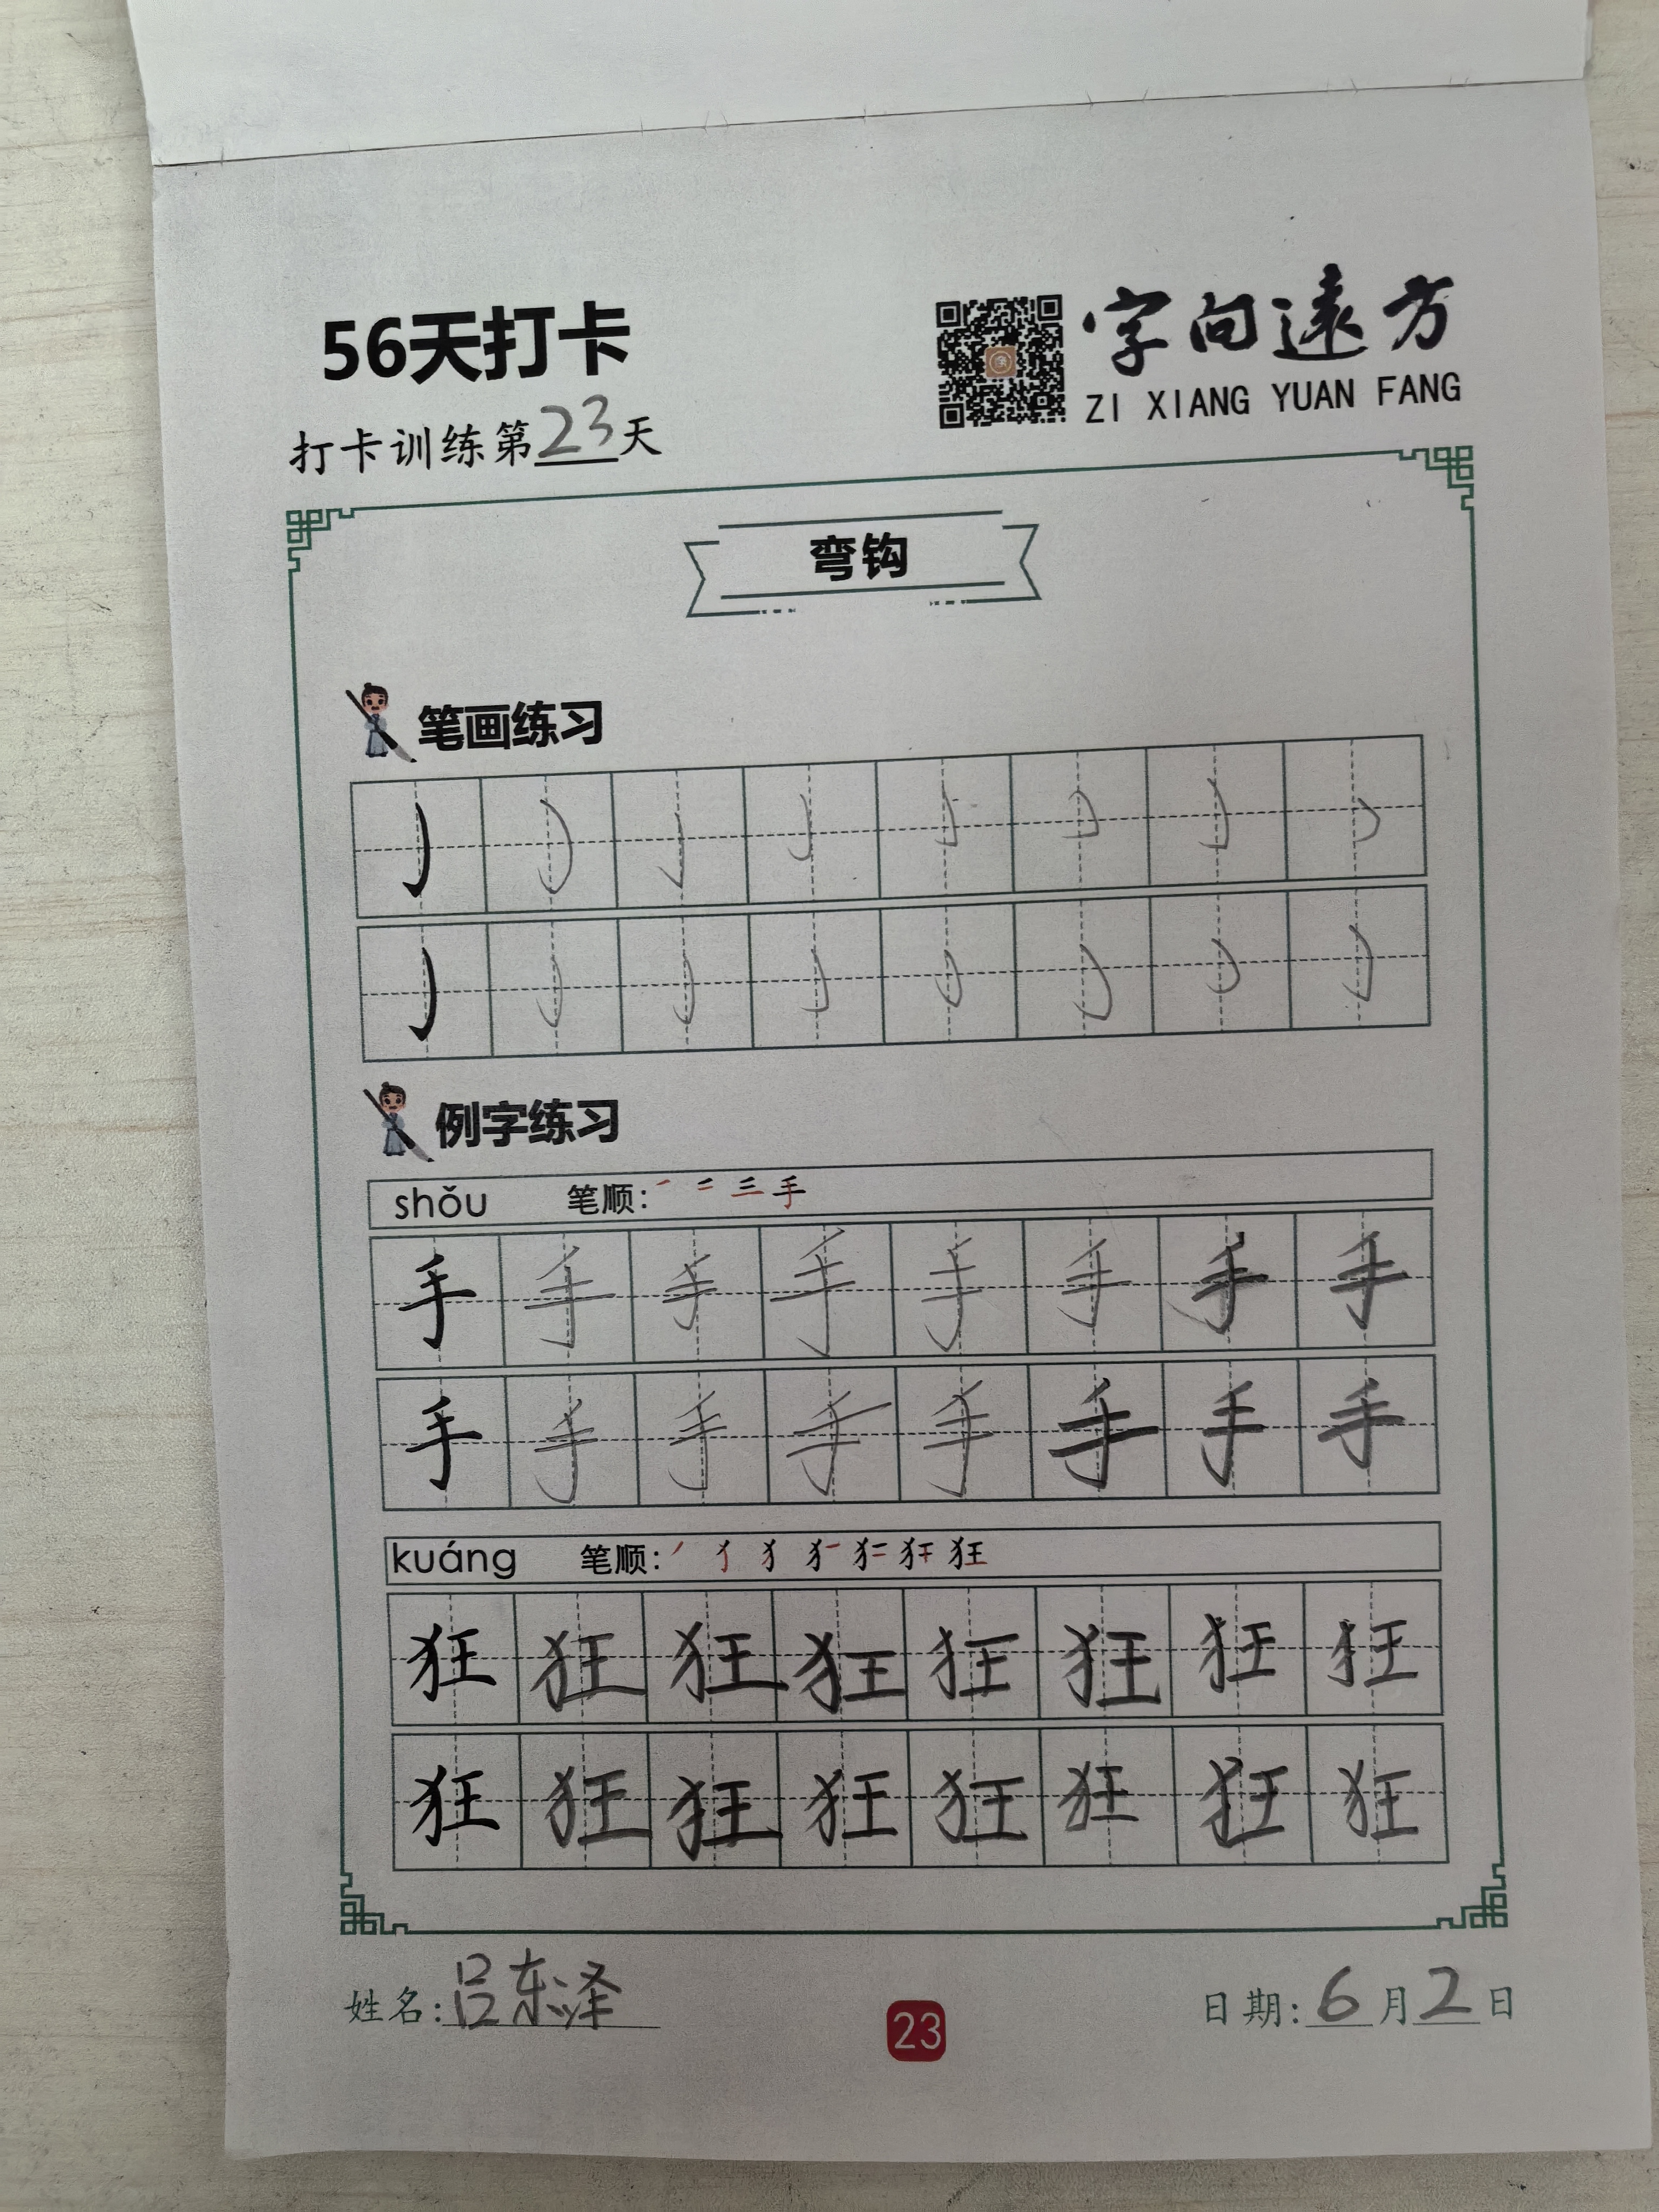 56天打卡
字向遠方
ZI XIANG YUAN FANG
打卡训练第23天
弯钩
笔画练习
例字练习
shǒu 笔顺: 一 二 三 手
手 手 手 手 手 手 手 手
手 手 手 手 手 手 手 手
kuáng 笔顺: 丿 犭 犭 犭一 犭二 犭干 狂
狂 狂 狂 狂 狂 狂 狂 狂
狂 狂 狂 狂 狂 狂 狂 狂
姓名: 吕东泽
23
日期: 6月2日